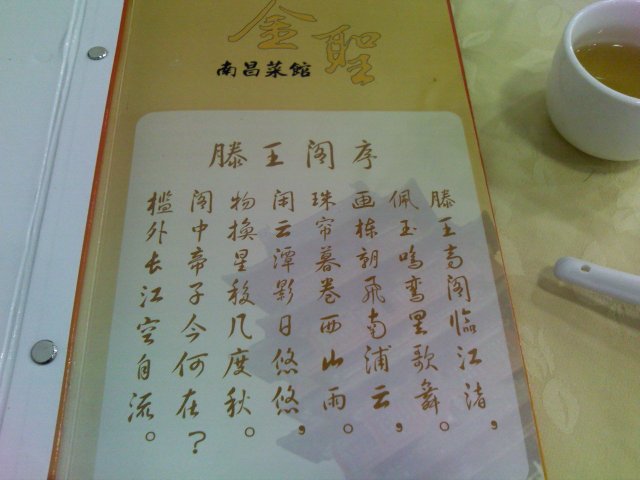 金聖
南昌菜館
滕王阁序
滕王高阁临江渚，
佩玉鸣鸾罢歌舞。
画栋朝飞南浦云，
珠帘暮卷西山雨。
闲云潭影日悠悠，
物换星移几度秋。
阁中帝子今何在？
槛外长江空自流。